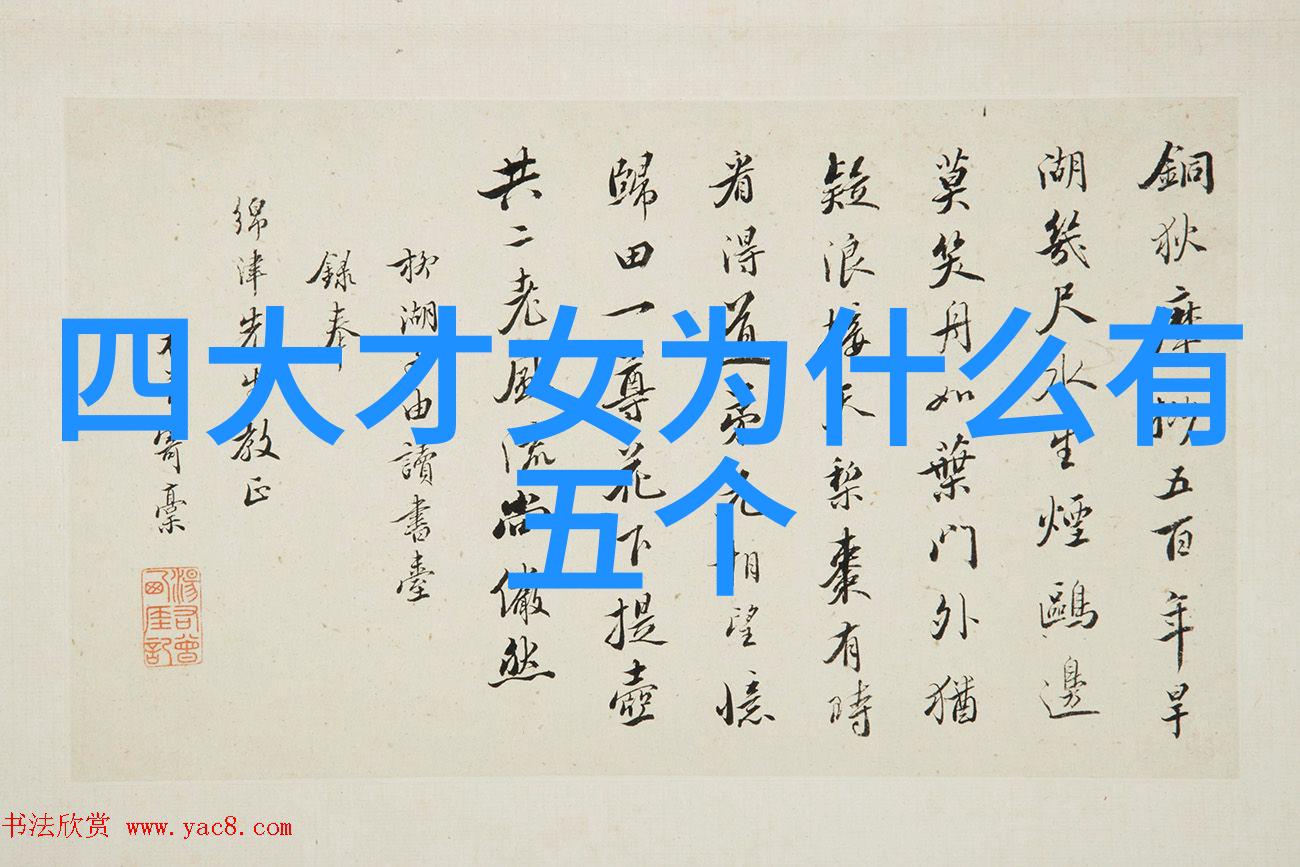 四大才女为什么有
五个
銅狄摩挲五百年旱
湖幾尺水生煙鷗邊
莫笑丹如葉門外猶
疑浪接天梨棗有時
看得道弟兄相望憶
歸田一尊花下提壺
共二老風流尚儼然
柳湖子由讀書臺
錄奉
綿津先生教正
寄稾
書法欣赏 www.yac8.com